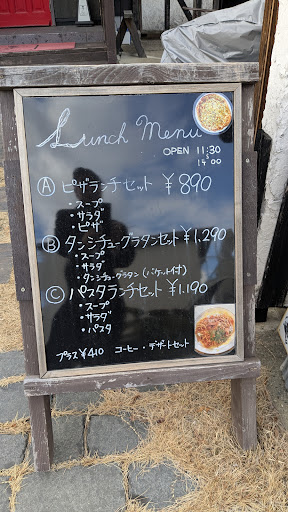 Lunch Menu
OPEN 11:30
～
15:00
Ⓐ ピザランチセット ¥890
・スープ
・サラダ
・ピザ
Ⓑ タンシチューグラタンセット ¥1,290
・スープ
・サラダ
・タンシチューグラタン (バケット付)
Ⓒ パスタランチセット ¥1,190
・スープ
・サラダ
・パスタ
プラス¥410 コーヒー・デザートセット